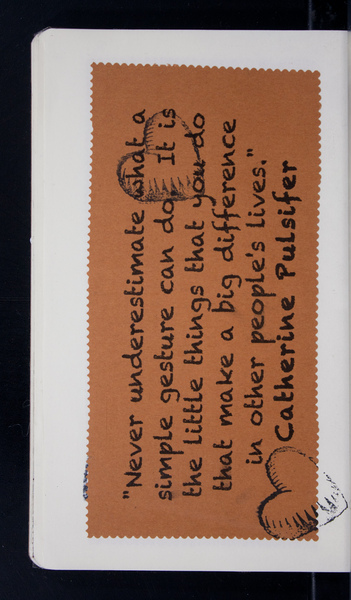 "Never underestimate what a
simple gesture can do. It is
the little things that you do
that make a big difference
in other people's lives."
Catherine Pulsifer